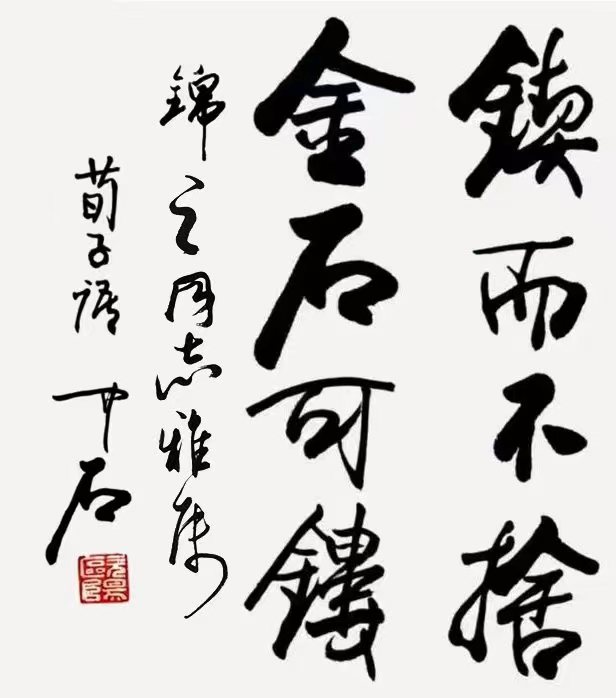 鍥而不捨
金石可鏤
錦之同志雅属
荀子語 中石